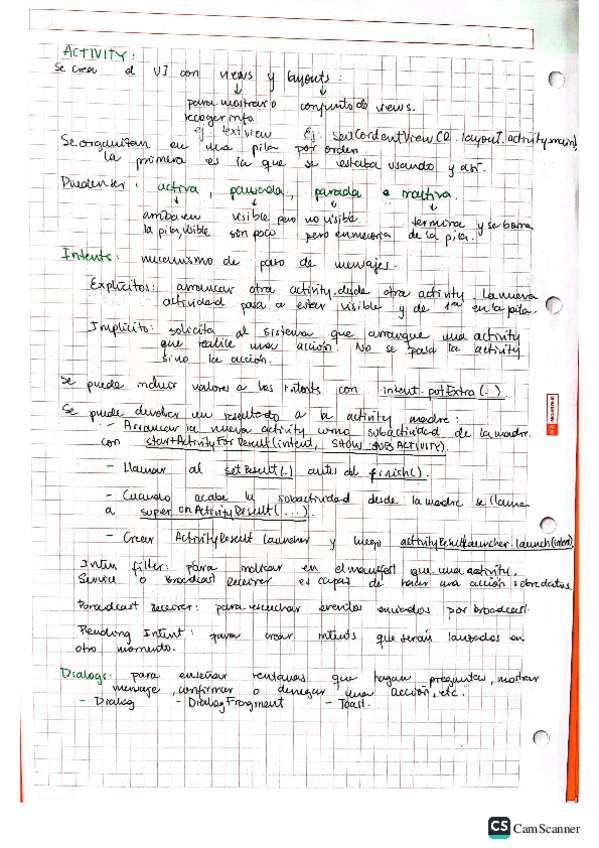 ACTIVITY:
Se crea el UI con views y layouts:
para mostrar o conjunto de views.
recoger info
ej textView Ej: setContentView(R.layout.activity_main)
Se organizan en una pila por orden.
la primera es la que se estaba usando y así.
Pueden ser: activa, pausada, parada o inactiva.
arriba en visible pero no visible. termina y se borra
la pila, visible son poco pero en memoria de la pila.
Intents: mecanismo de paso de mensajes.
Explícitos: arrancar otra activity desde otra activity. La nueva
actividad pasa a estar visible y de 1ra en la pila.
Implícito: solicita al sistema que arranque una activity
que realice una acción. No se pasa la activity
sino la acción.
Se puede incluir valores a los intents con intent.putExtra(..).
Se puede devolver un resultado a la activity madre:
- Arrancar la nueva activity como subactividad de la madre.
con startActivityForResult(intent, SHOW_SUBACTIVITY).
- Llamar al setResult(.) antes del finish().
- Cuando acabe la subactividad desde la madre se llama
a super.onActivityResult(...).
- Crear ActivityResultLauncher y luego activityResultLauncher.launch(intent)
Inten filter: para indicar en el manifest que una activity,
Service o Broadcast Receiver es capaz de hacer una acción sobre datos.
Broadcast Receiver: para escuchar eventos enviados por broadcast.
Pending Intent: para crear intents que serán lanzados en
otro momento.
Dialogs: para enseñar ventanas que hagan preguntas, mostrar
mensaje, confirmar o denegar una acción, etc.
- Dialog - DialogFragment - Toast.
CS CamScanner